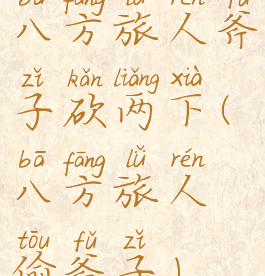 bā fāng lǚ rén fǔ
八方旅人斧
zǐ kǎn liǎng xià
子砍两下(
bā fāng lǚ rén
八方旅人
tōu fǔ zǐ
偷斧子)